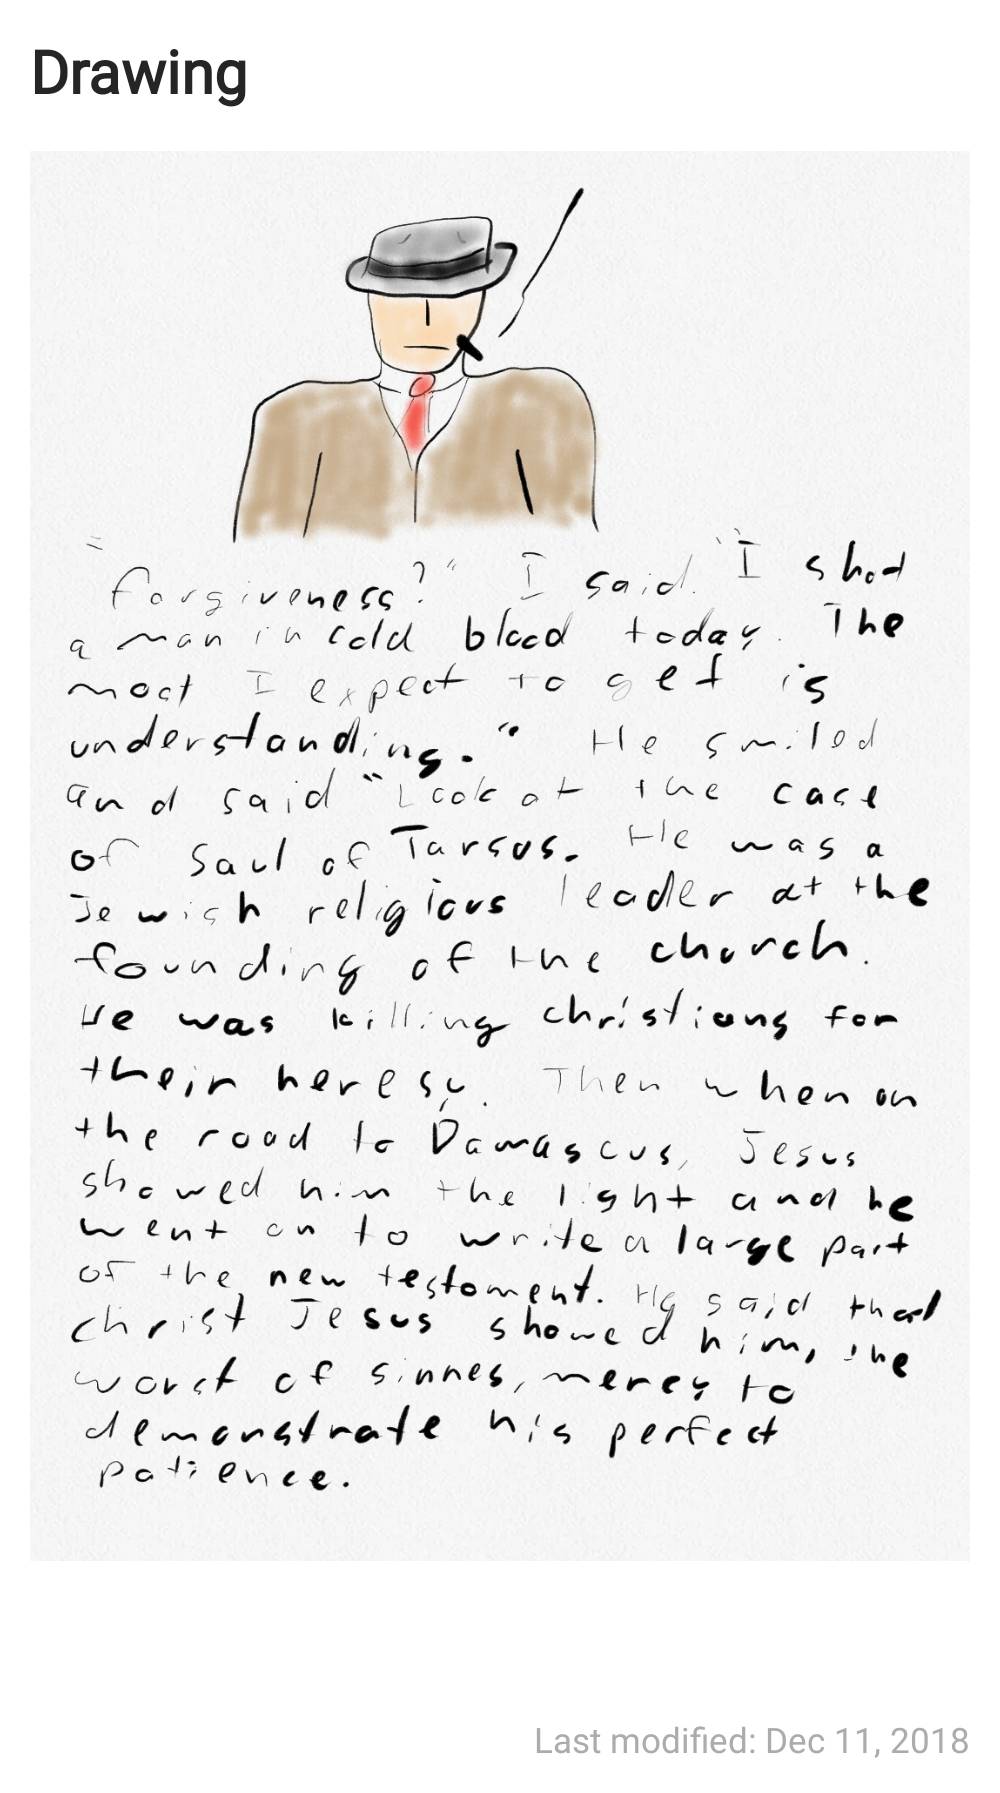 Drawing
"forgiveness?" I said. "I shot
a man in cold blood today. The
most I expect to get is
understanding." He smiled
and said "Look at the case
of Saul of Tarsus. He was a
Jewish religious leader at the
founding of the church.
He was killing christians for
their heresy. Then when on
the road to Damascus, Jesus
showed him the light and he
went on to write a large part
of the new testoment. He said that
christ Jesus showed him, the
worst of sinnes, mercy to
demonstrate his perfect
patience.
Last modified: Dec 11, 2018